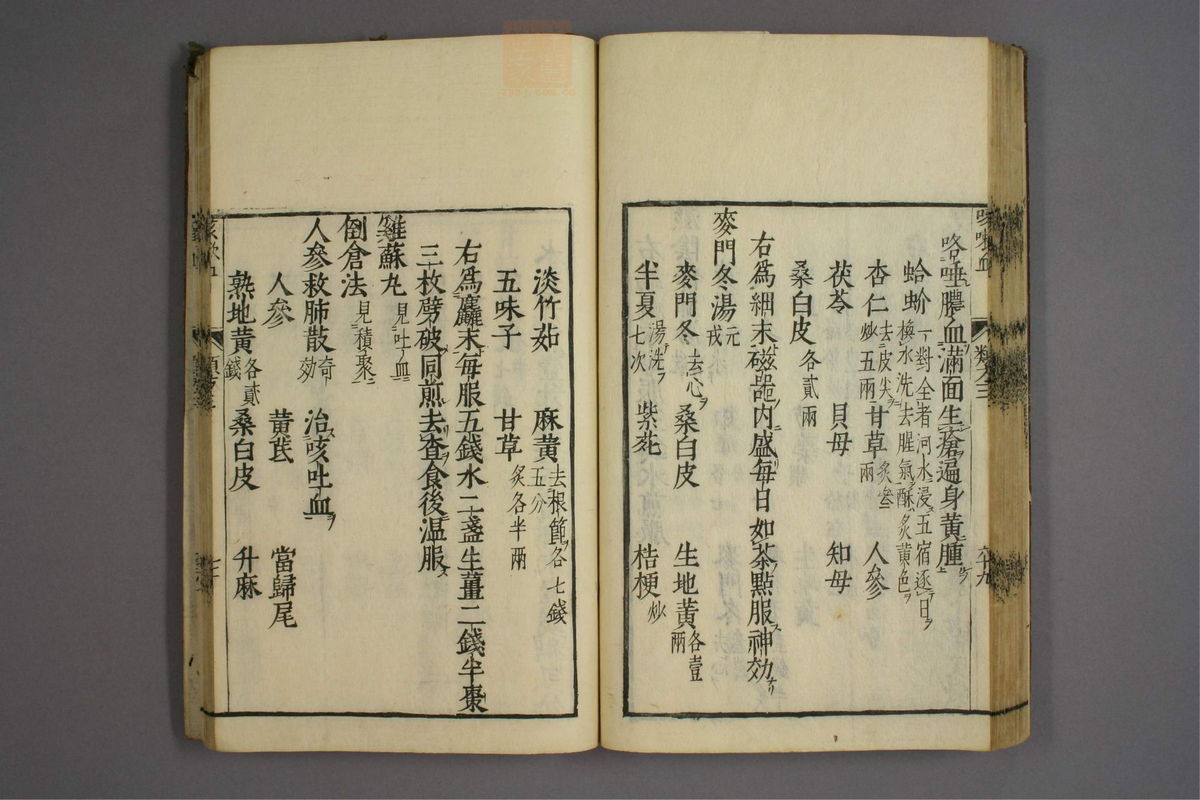 咯唾膿血滿面生瘡遍身黃腫
蛤蚧一對全者河水浸五宿逐日
換水洗去腥氣酥炙黃色
杏仁去皮尖炒五兩 甘草炙叄兩 人參
茯苓 貝母 知母
桑白皮各貳兩
右爲細末磁噐内盛每日如茶㸃服神効
麥門冬湯元戎
麥門冬去心 桑白皮 生地黃各壹兩
半夏湯洗七次 紫菀 桔梗炒
淡竹茹 麻黃去根節各七錢五分
五味子 甘草炙各半兩
右爲麤末每服五錢水二盞生薑二錢半棗
三枚劈破同煎去查食後温服
雞蘇丸見吐血
倒倉法見積聚
人參救肺散奇効 治咳吐血
人參 黃芪 當歸尾
熟地黃各貳錢 桑白皮 升麻